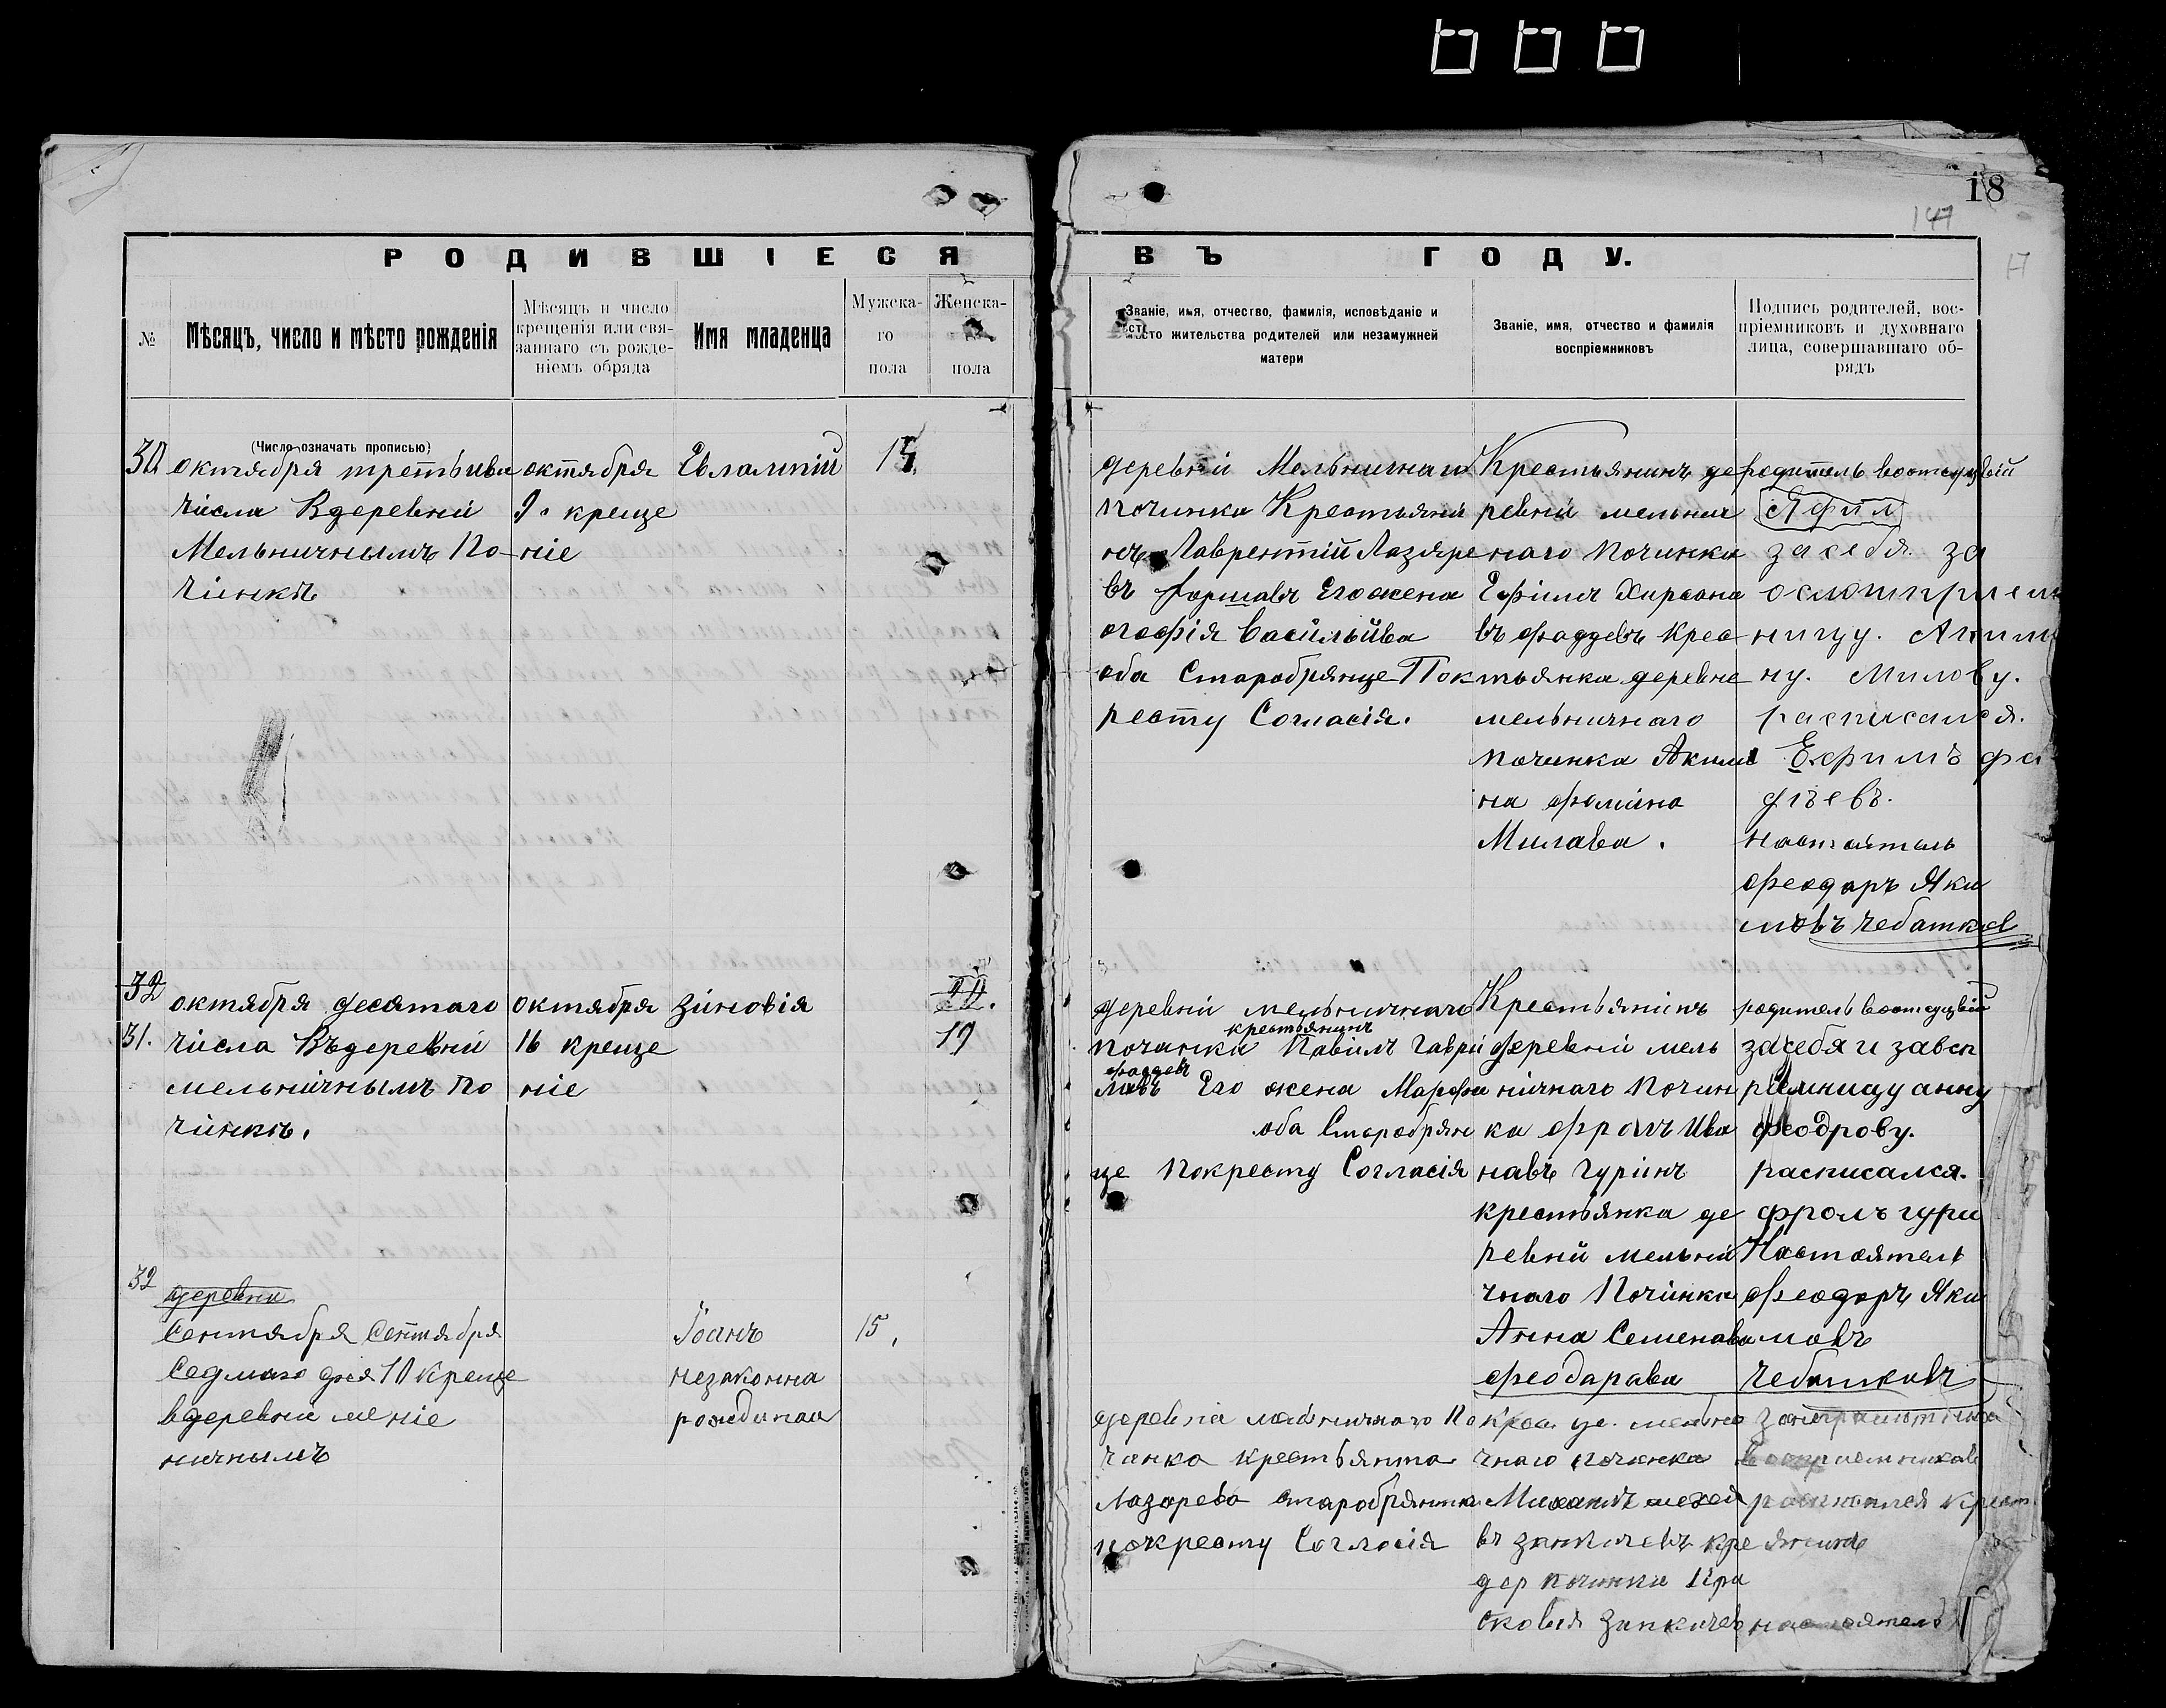 18
147
17
РОДИВШІЕСЯ
ВЪ ГОДУ.
№
Мѣсяцъ, число и мѣсто рожденія
Мѣсяцъ и число
крещенія или свя-
заннаго съ рожде-
ніемъ обряда
Имя младенца
Мужска-
го
пола
Женска-
пола
Званіе, имя, отчество, фамилія, исповѣданіе и
мѣсто жительства родителей или незамужней
матери
Званіе, имя, отчество и фамилія
воспріемниковъ
Подпись родителей, вос-
пріемниковъ и духовнаго
лица, совершавшаго об-
рядъ
(Число означать прописью)
30
октября третьива
числа Вдеревни
Мельничнымъ По-
чинкѣ
октября
9. креще
ніе
Евлампій
деревни Мельничнаго
починка Крестьяни
нъ Лаврентій Лазаре
въ Его жена
Васильива
оба Старобрянце По
кресту Согласія.
Крестьянинъ де
ревни мельнич
наго Починка
Ефимъ Хирсона
въ Фаддевъ Крес
тьянка деревне
мельничнаго
починка Акили
на Фомина
Милава.
родитель
за себя за
ницу. Акили
ну. Милову.
расписался.
Ефимъ Фа
дѣевъ.
Настаятель
Феодаръ Яки
мовъ Чебатков
32
31.
октября десятаго
числа Въдеревни
мельничнымъ По
чинкѣ.
октября
16 креще
ніе
Зиновія
19
деревни мельничнаго
крестьянинъ
починка Павилъ Гаври
Фаддевъ
ловъ Его жена Марфа
оба Старобрян
це Покресту Согласія
Крестьянинъ
деревни мель
ничнаго Почин
ка Фролъ Ива
навъ Гуринъ
крестьянка де
ревни мельни
чнаго Починка
Анна Семенава
Феодарава
родитель
за себя и завсп
риемницу анну
Феодрову.
расписался.
Фролъ гури
Настоятель
Феодаръ Яки
мовъ
Чебатковъ
32
деревни
Сентября Сентября
Седмаго дня 10 Креще
вдеревни ме ніе
ничнымъ
Іоанъ
незаконна
рожднаи
15.
деревнія мельничнаго По
чинка крестьянка
Лазарева старобрянка
покресту Согласія
Крес де. мельни
чнаго починка
Михаилъ
въ кре
дер починка Пра
сковья
настоятель